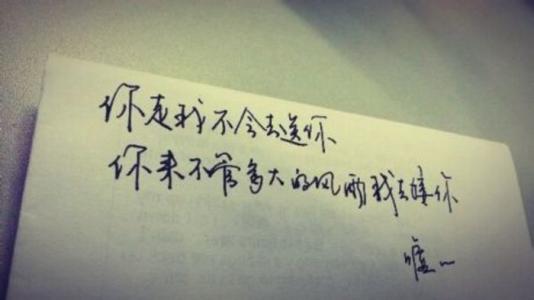 你走我不会去送你
你来不管多大的风雨我去接你
嘘~